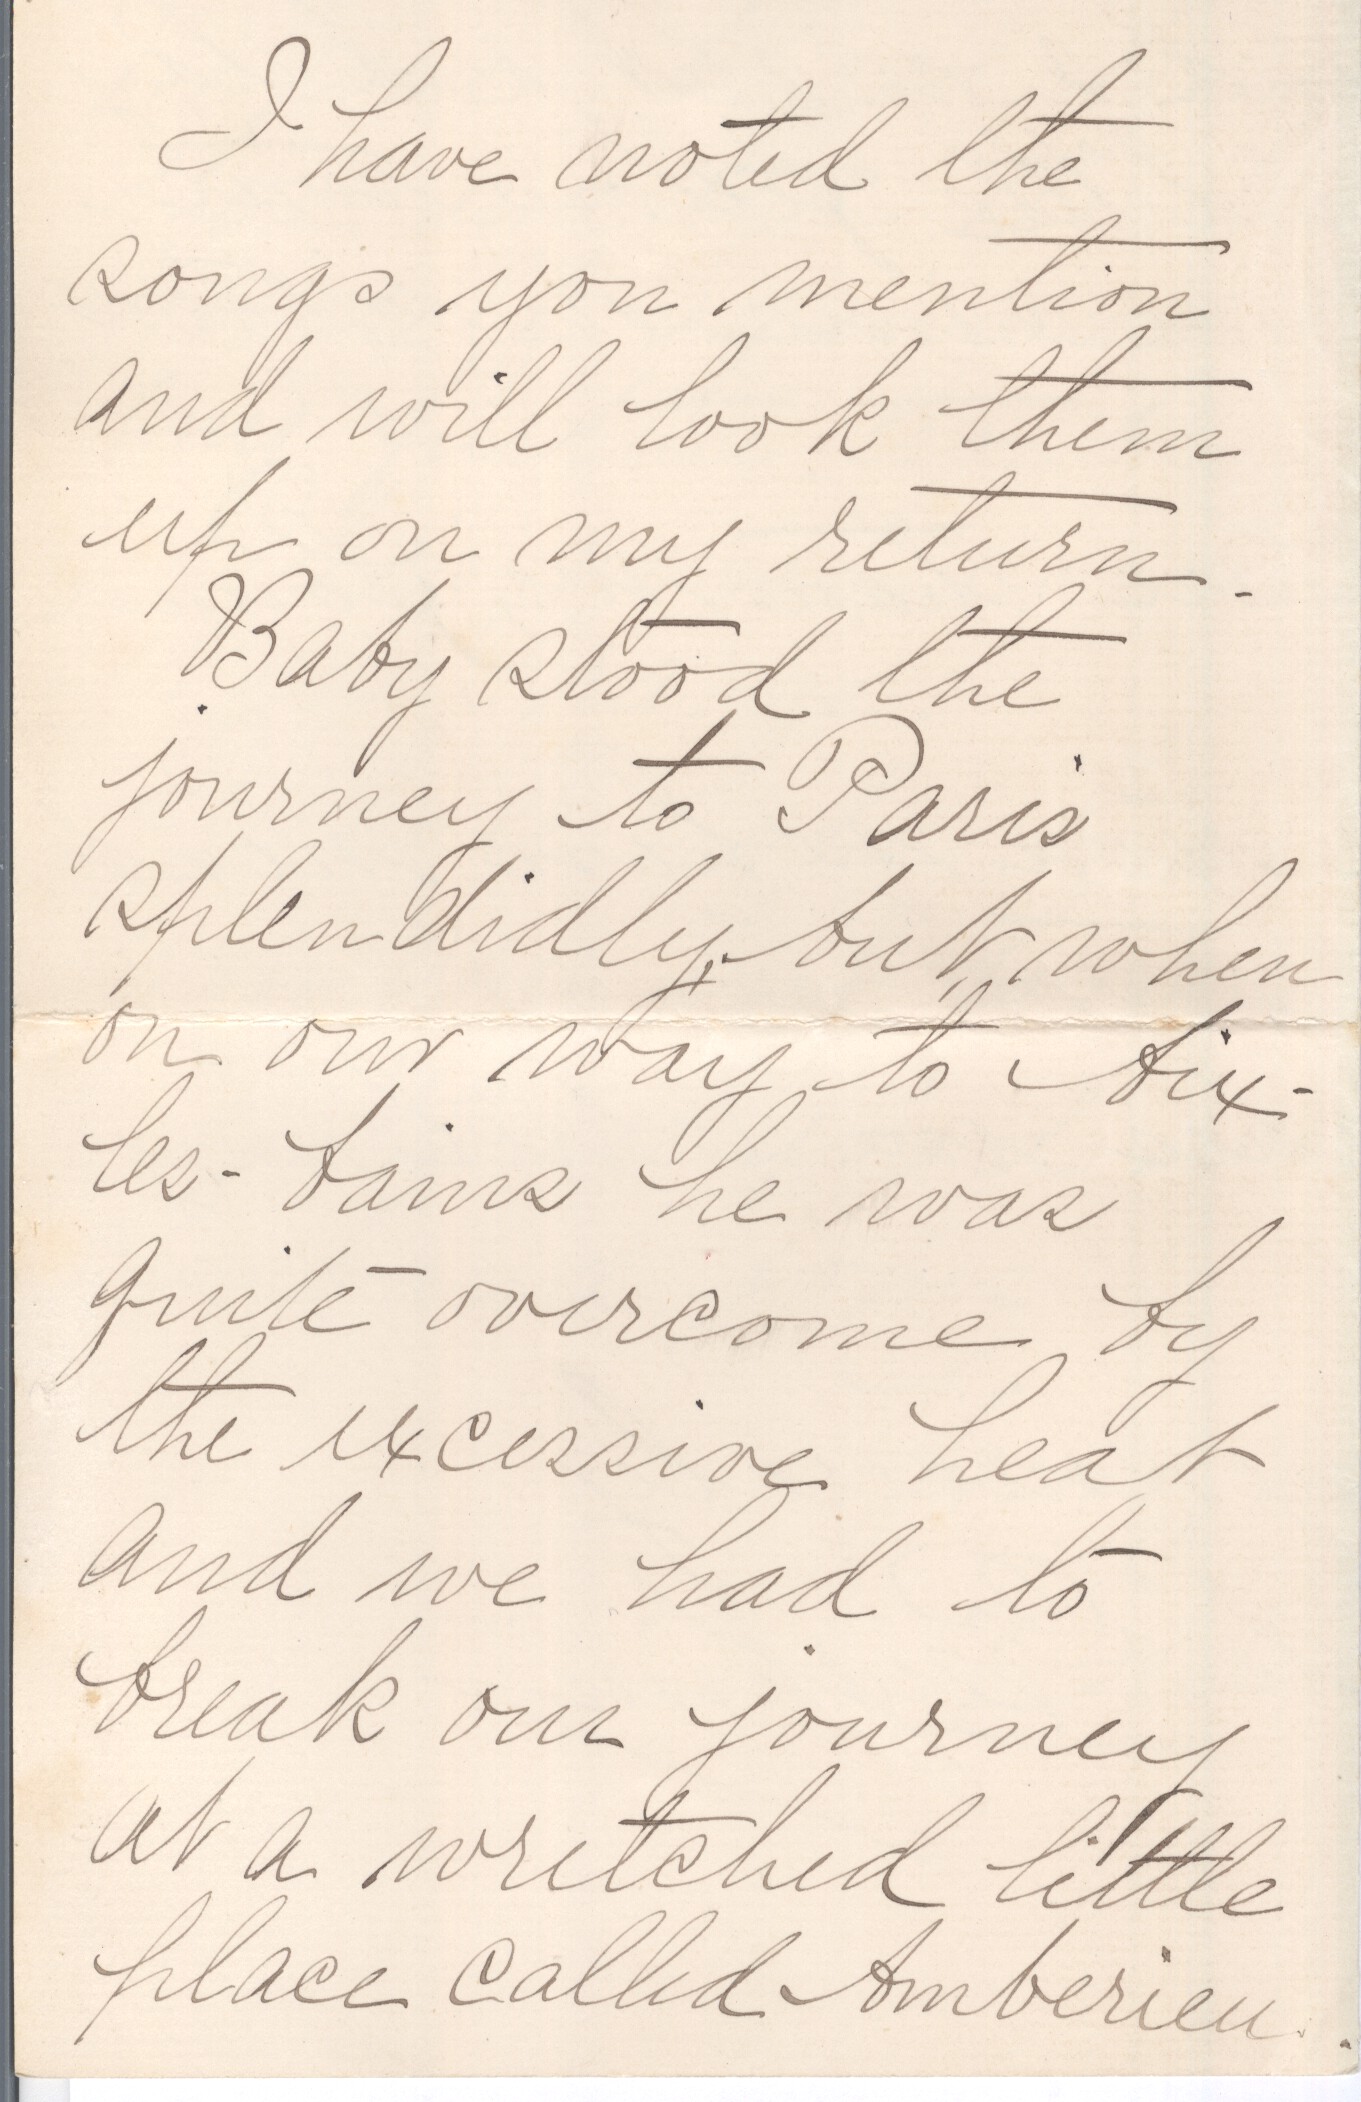 I have noted the
songs you mention
and will look them
up on my return.
Baby stood the
journey to Paris
splendidly, but when
on our way to Aix-
les-bains he was
quite overcome by
the excessive heat
and we had to
break our journey
at a wretched little
place called Amberieu.